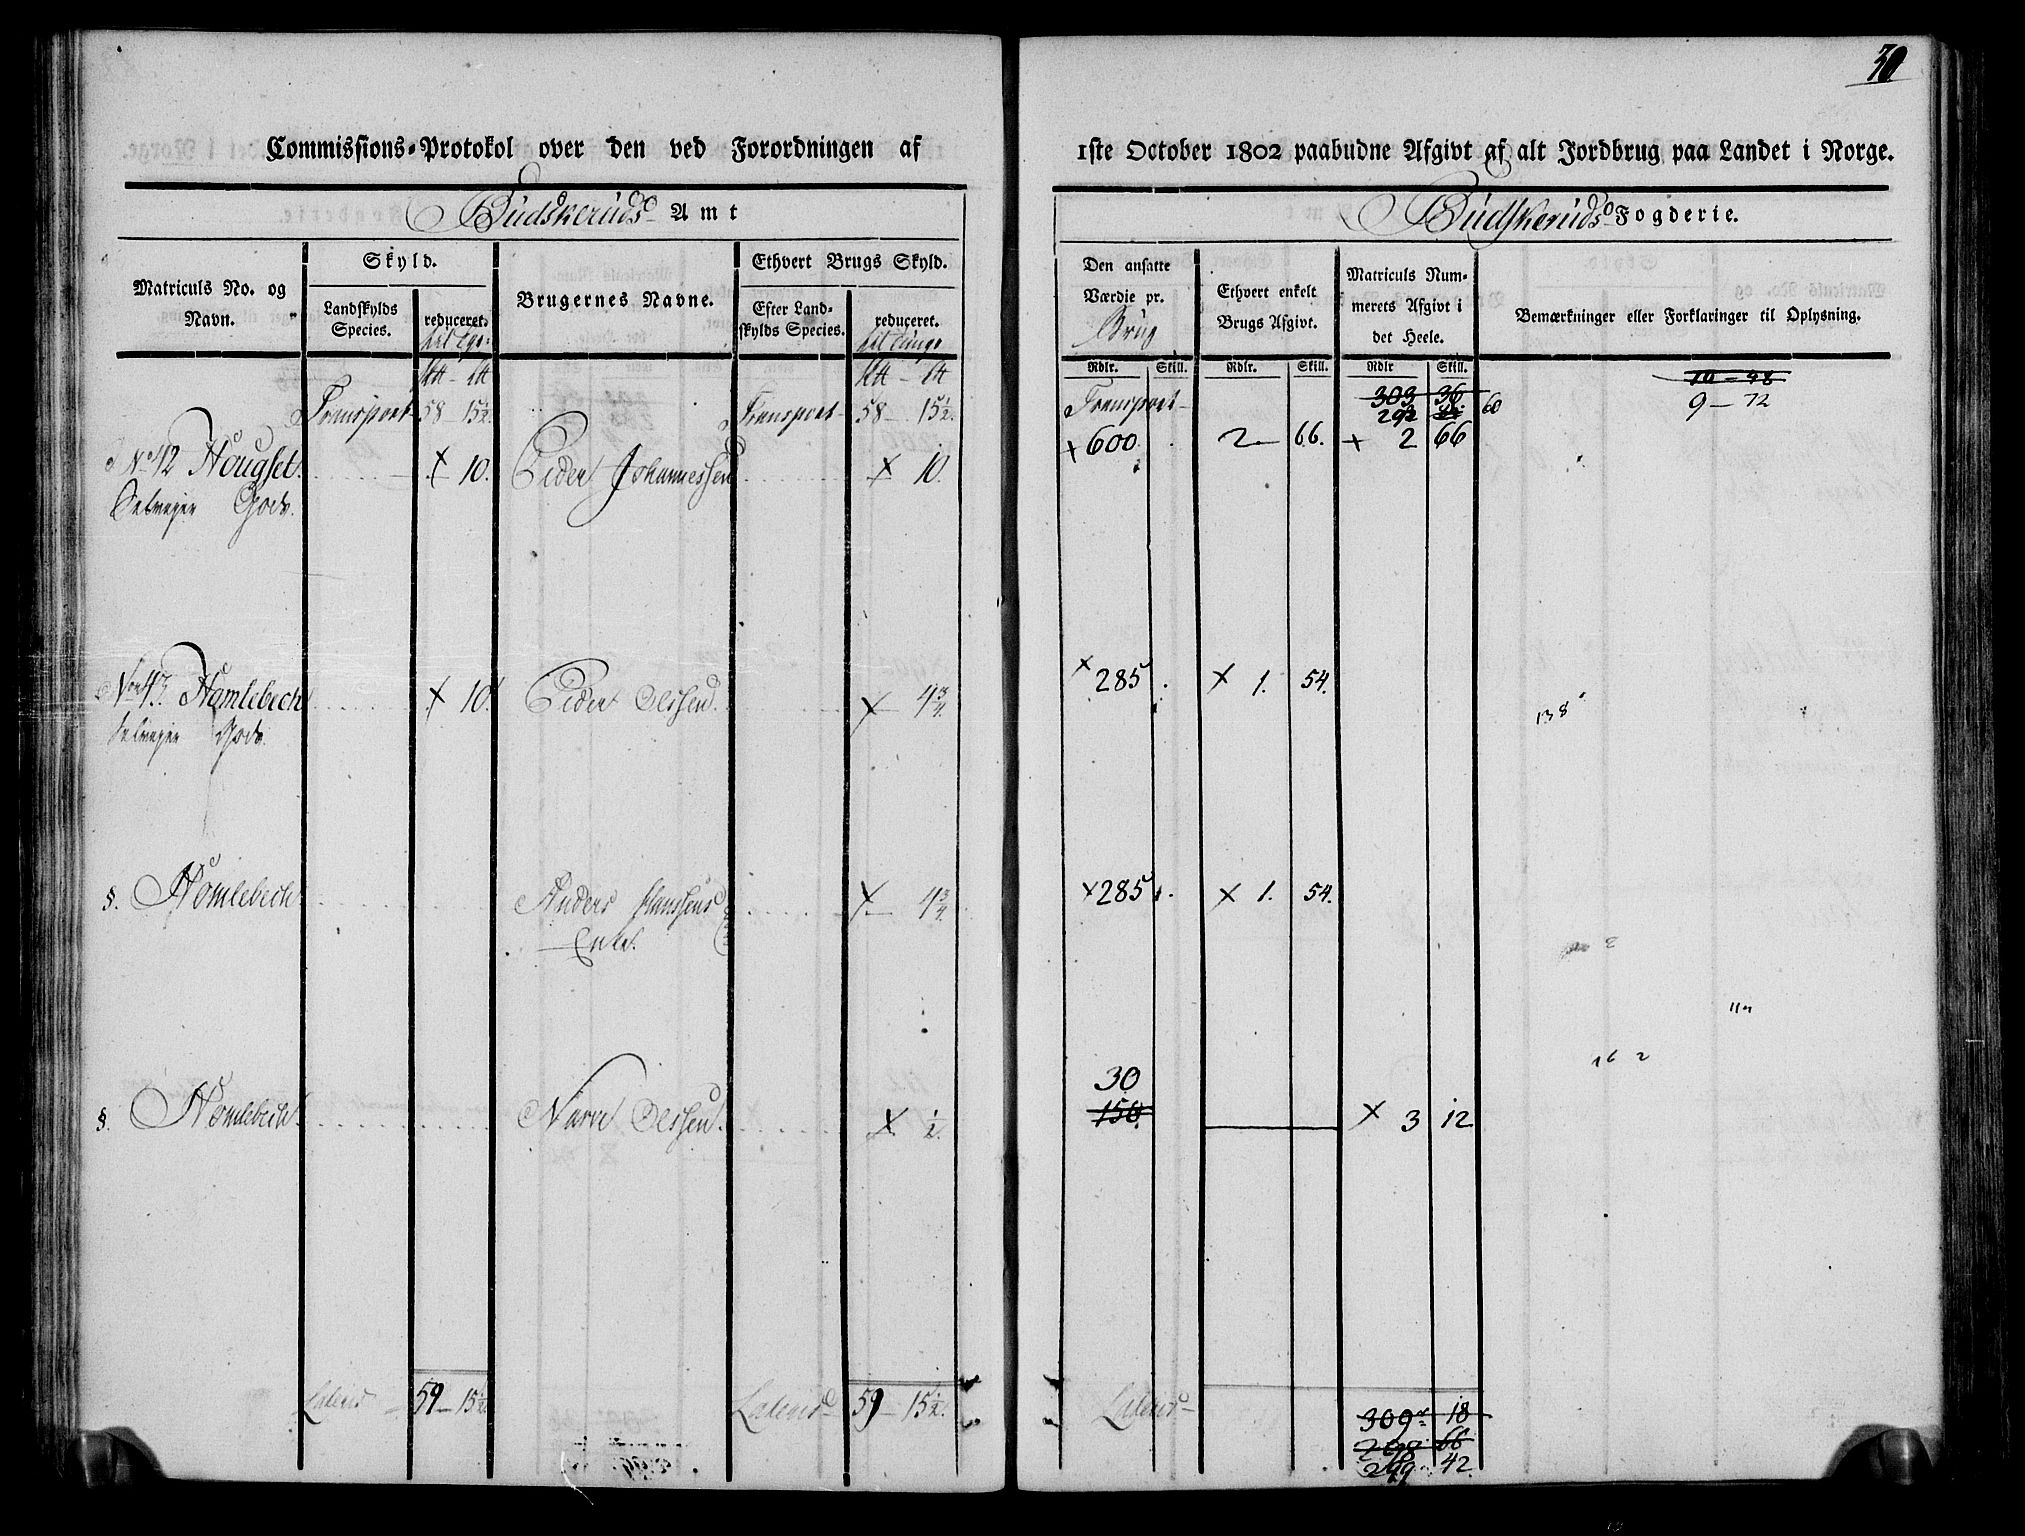 30
Commissions-Protokol over den ved Forordningen af 1ste October 1802 paabudne Afgivt af alt Jordbrug paa Landet i Norge.
Budskeruds Amt
Budskeruds Fogderie.
Matriculs No. og Navn.
Skyld.
Landskylds Species.
reduceret.
Brugernes Navne.
Ethvert Brugs Skyld.
Efter Landskylds Species.
reduceret.
Den ansatte Værdie pr. Brug
Ethvert enkelt Brugs Afgivt.
Matriculs Nummerets Afgivt i det Heele.
Bemærkninger eller Forklaringer til Oplysning.
Rdlr. Skill. Rdlr. Skill. Rdlr Skill.
Transport 58 - 15½ Transport 58 - 15½. Transport 303 36 10 - 48
292 60 9 - 72
No 42 Hougset × 10. Peder Johannessen × 10. × 600. 2 - 66. × 2 66
Selveyer Gods.
No 43. Hamlebech × 10. Peder Olssen × 4¾. × 285. × 1. 54. 138
Selveyer Gods.
§. Hamlebech Anders Hanssens Enke. × 4¾. × 285. × 1. 54.
30
§. Hamlebech Narve Olssen × ½. 150. × 3 12
162
Lateris 59 - 15½ Lateris 59 - 15½. Lateris 309 18
66
299 42